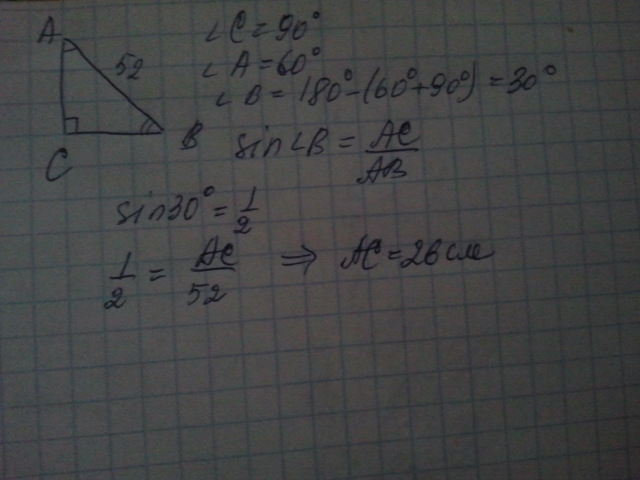 A
52
B
C
∠C = 90°
∠A = 60°
∠B = 180° - (60° + 90°) = 30°
sin∠B = AC/AB
sin30° = 1/2
1/2 = AC/52 ⇒ AC = 26 см